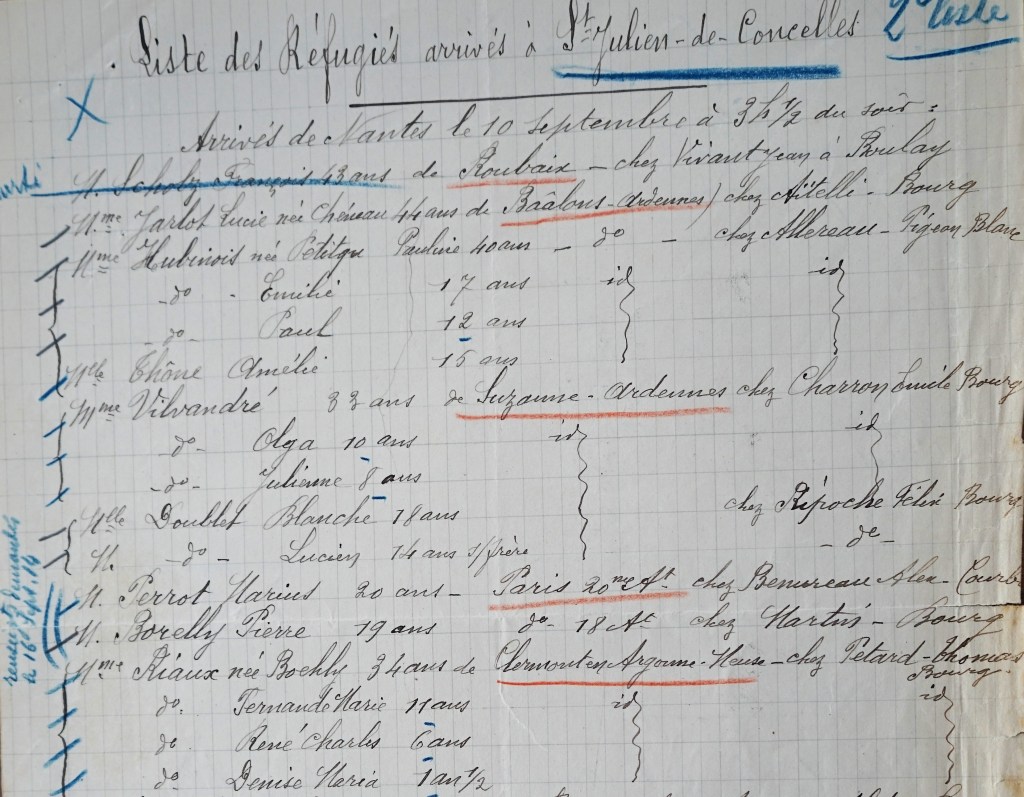 2e Liste
Liste des Réfugiés arrivés à St Julien-de-Concelles
Arrivés de Nantes le 10 Septembre à 3h 1/2 du soir:
M. Scholz François 43 ans de Roubaix - chez Vivant Jean à Boulay
Mme Jarlot Lucie née Chéneau 44 ans de Baâlons-Ardennes) chez Aitelli - Bourg
Mme Hubinois née Petitqu Pauline 40 ans - do - chez Allereau - Pigeon Blanc
- do - Emilie 17 ans id id
- do - Paul 12 ans
Melle Thône Amélie 15 ans
Mme Vilvandré 33 ans de Suzanne-Ardennes chez Charron Emile Bourg
do - Olga 10 ans id id
- do - Julienne 8 ans
Melle Doublet Blanche 18 ans chez Ripoche Félix Bourg
M. - do - Lucien 14 ans s/frère - do -
M. Perrot Marius 20 ans - Paris 20me At chez Benureau Alex - Courb
M. Borelly Pierre 19 ans do - 18 At chez Martin - Bourg
Mme Riaux née Boehly 34 ans de Clermont en Argonne-Meuse - chez Petard-Thomas
Bourg
do. Fernande Marie 11 ans id id
do René Charles 6 ans
do Denise Maria 1 an 1/2
renseigts demandés
le 16 Sept. 14